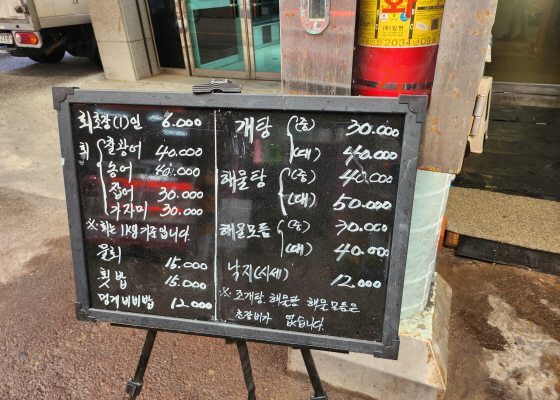 회초장(1)인 6.000
회
참광어 40.000
농어 40.000
잡어 30.000
가자미 30.000
※ 회는 1kg 기준입니다.
물회 15.000
횟밥 15.000
멍게비빔밥 12.000
개탕 (중) 30.000
(대) 40.000
해물탕 (중) 40.000
(대) 50.000
해물모듬 (중) 30.000
(대) 40.000
낙지(시세) 12.000
※ 조개탕. 해물탕 해물모듬은
초장비가 없습니다.
2034년09